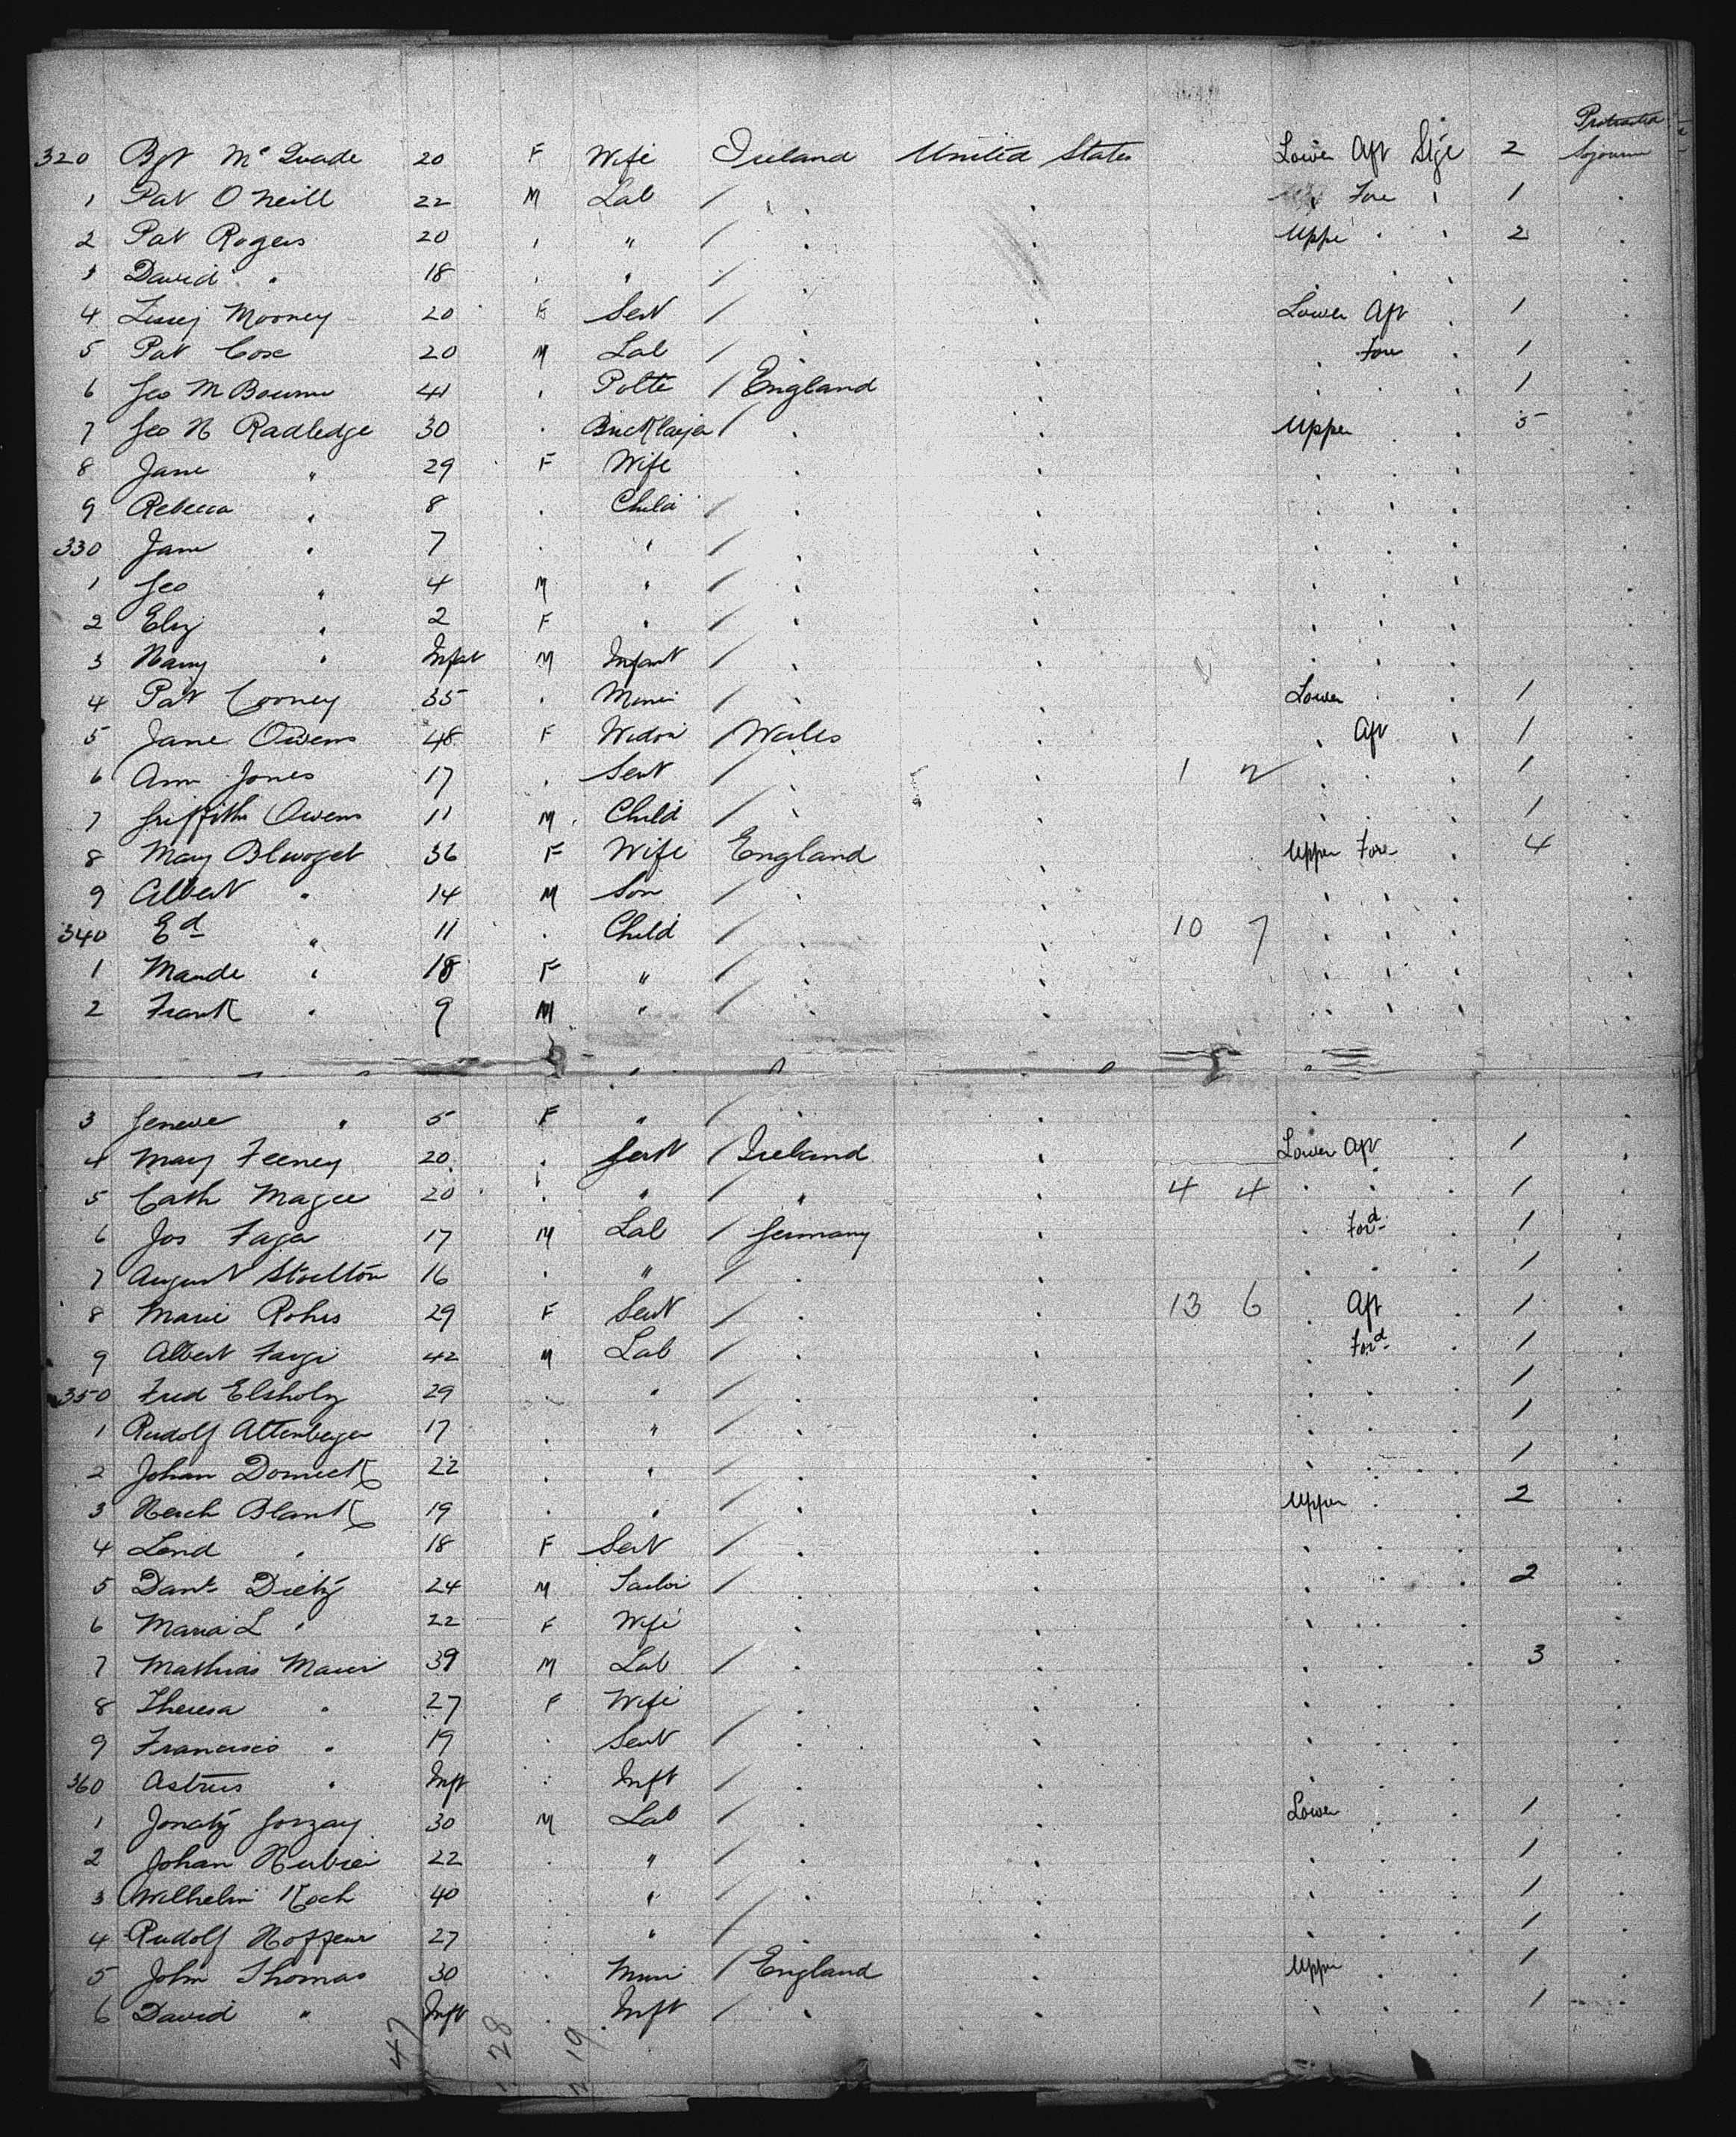 Protracted
320 Bgt McQuade 20 F Wife Ireland United States Lower Aft Stge 2 Sojourn
1 Pat O'Neill 22 M Lab / " " " Fore " 1 "
2 Pat Rogers 20 " " / " " Upper " " 2 "
3 David " 18 " " / " " " " "
4 Lizzy Mooney 20 F Sert / " " Lower Aft " 1 "
5 Pat Cox 20 M Lab / " " " Fore " 1 "
6 Geo M Bourne 41 " / England " " " 1 "
7 Geo H Radledge 30 " Bricklayer / " " Upper " " 5 "
8 Jane " 29 F Wife " " " " " "
9 Rebecca " 8 " Child / " " " " " "
330 Jane " 7 " " / " " " " " "
1 Geo " 4 M " / " " " " " "
2 Eliz " 2 F " / " " " " " "
3 Harry " Infat M Infant / " " " " " "
4 Pat Cooney 35 " Miner / " " Lower " " 1 "
5 Jane Owens 48 F Widow / Wales " " Aft " 1 "
6 Ann Jones 17 " Sert / " " 1 2 " " " 1 "
7 Griffith Owens 11 M Child / " " " " " 1 "
8 Mary 36 F Wife England " Upper Fore " 4 "
9 Albert " 14 M Son / " " " " " "
340 Ed " 11 " Child / " " 10 7 " " " "
1 Maude " 18 F " / " " " " " "
2 Frank " 9 M " / " " " " " "
3 Geneve " 5 F " / " " " " "
4 Mary Feeney 20 " Sert / Ireland " Lower Aft " 1 "
5 Cath Magee 20 " " / " " 4 4 " " " 1 "
6 Jos Faga 17 M Lab / Germany " " Ford " 1 "
7 August Stoelton 16 " " / " " " " " 1 "
8 Marie Rohrs 29 F Sert / " " 13 6 " Aft " 1 "
9 Albert 42 M Lab / " " " Ford " 1 "
350 Fred Elsholz 29 " " / " " " " " 1 "
1 Rudolf Altenberger 17 " " / " " " " " 1 "
2 Johan Domeck 22 " " / " " " " " 1 "
3 Blank 19 " " / " " Upper " " 2 "
4 Lend " 18 F Sert / " " " " " "
5 Danl Dietz 24 M Tailor / " " " " " 2 "
6 Maria L " 22 F Wife " " " " " "
7 Mathias Maier 39 M Lab / " " " " " 3 "
8 Theresa " 27 F Wife " " " " " "
9 Francisco " 19 " Sert / " " " " " "
360 " Inft " Inft / " " " " " "
1 30 M Lab / " " Lower " " 1 "
2 Johan 22 " " / " " " " " 1 "
3 Wilhelm Koch 40 " " / " " " " " 1 "
4 Rudolf 27 " " / " " " " " 1 "
5 John Thomas 30 " / England " Upper " " 1 "
6 David " Inft " Inft / " " " " " 1 "
47 28 19